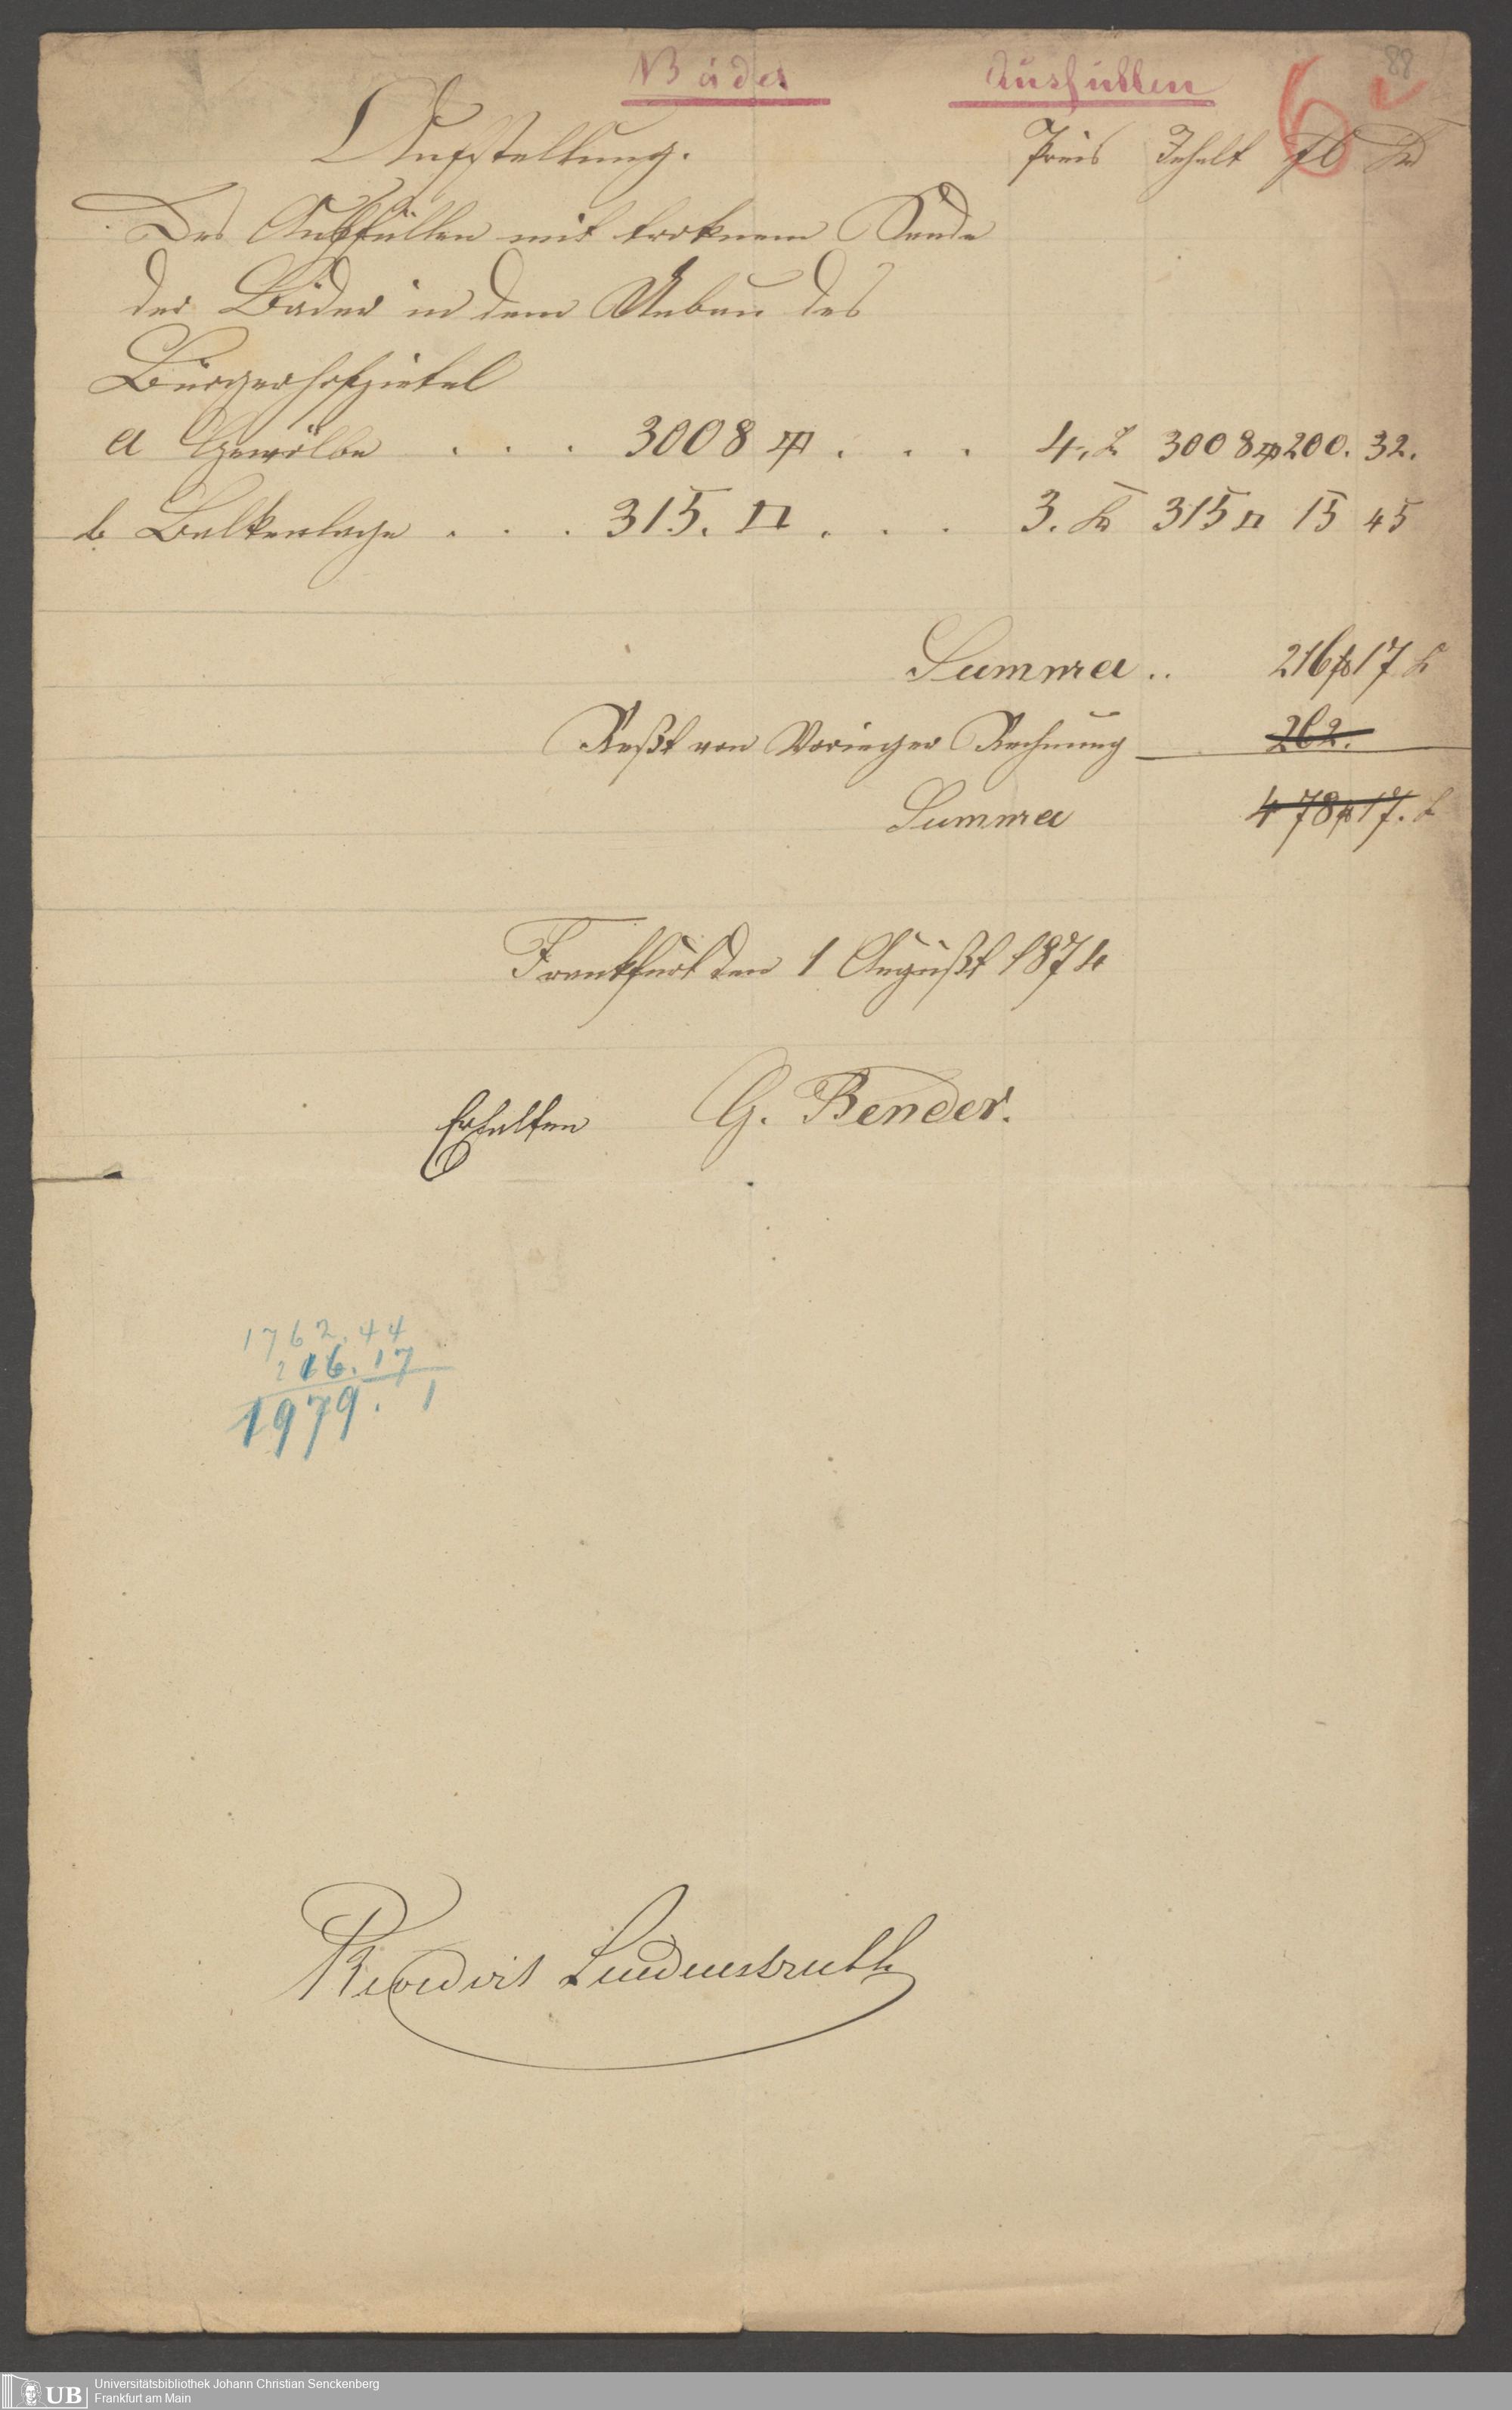 88
Bäder Ausfüllen 6
Aufstellung. Preis Inhalt fl Kr
Das Ausfüllen mit troknem Sande
der Bäder in dem Anbau des
Bürgerhospital
a Gewölbe . . . 3008 . . . 4. 3008 200. 32.
b Balkenlage . . . 315. □ . . . 3. Kr 315 □ 15 45
Summa .. 216 fl 17 Kr
Reßt von Voriger Rechnung 262.
Summa 478 fl 17. Kr
Frankfurt den 1 Augußt 1874
Erhalten G. Bender.
1762.44
216.17
1979. 1
Revidirt Lindenstruth
UB
Universitätsbibliothek Johann Christian Senckenberg
Frankfurt am Main